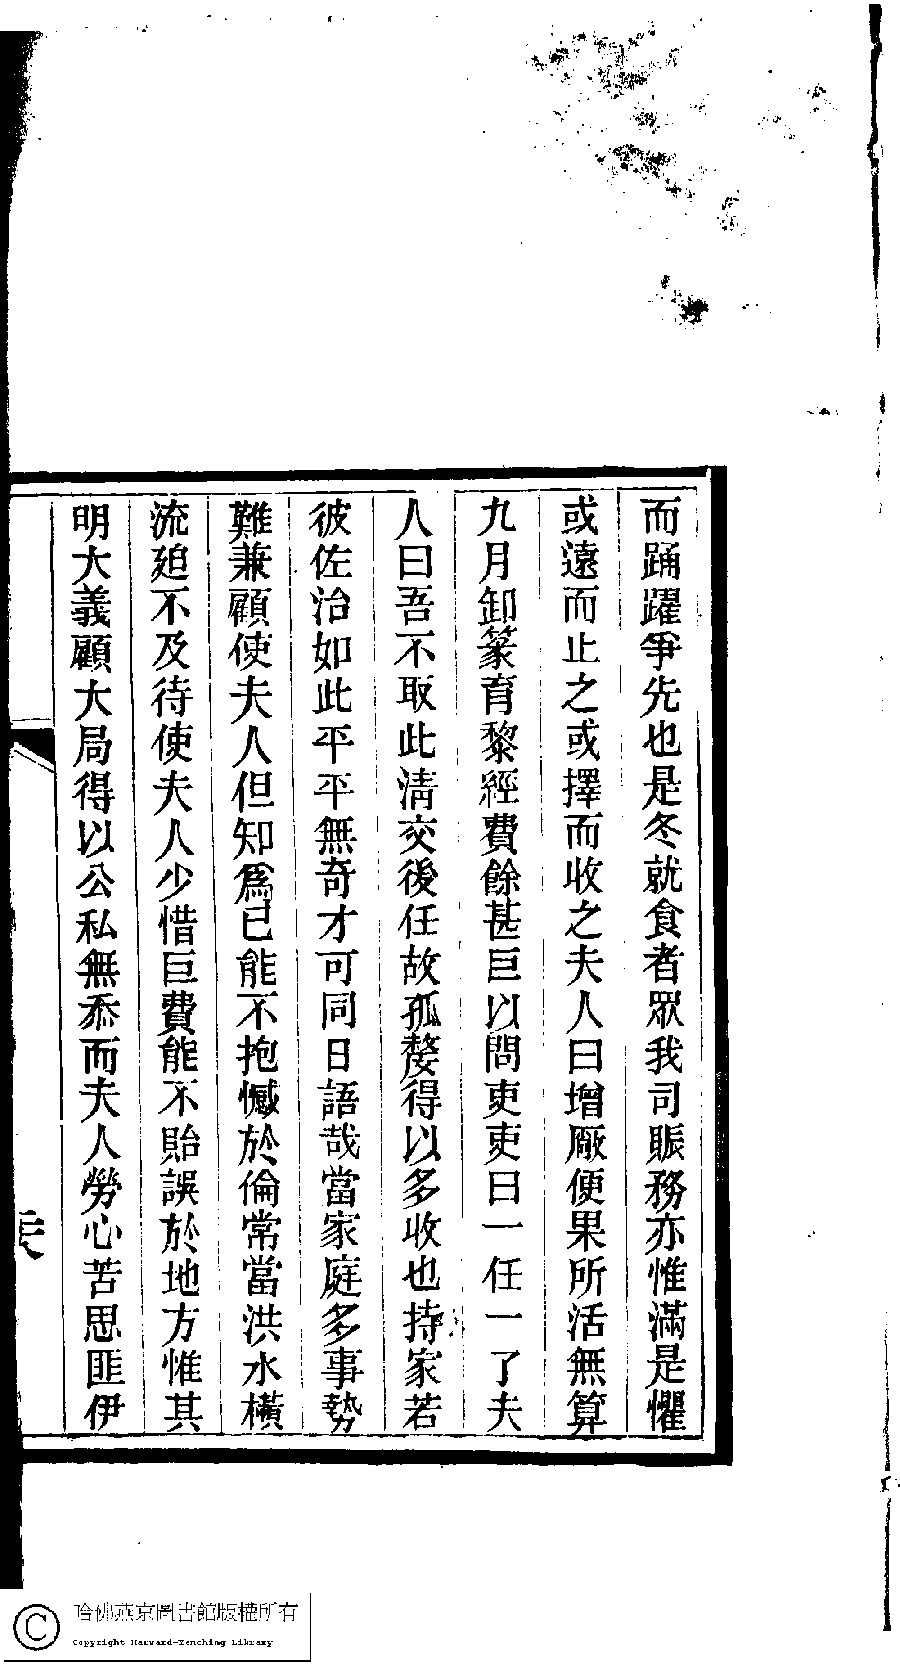 而踊躍爭先也是冬就食者眾我司賑務亦惟滿是懼
或遠而止之或擇而收之夫人曰增厰便果所活無算
九月卸篆育黎經費餘甚巨以問吏吏曰一任一了夫
人曰吾不取此清交後任故孤嫠得以多收也持家若
彼佐治如此平平無奇才可同日語哉當家庭多事勢
難兼顧使夫人但知爲己能不抱憾於倫常當洪水橫
流廹不及待使夫人少惜巨費能不貽誤於地方惟其
明大義顧大局得以公私無忝而夫人勞心苦思匪伊
哈佛燕京圖書館版權所有
Copyright Harvard-Yenching Library